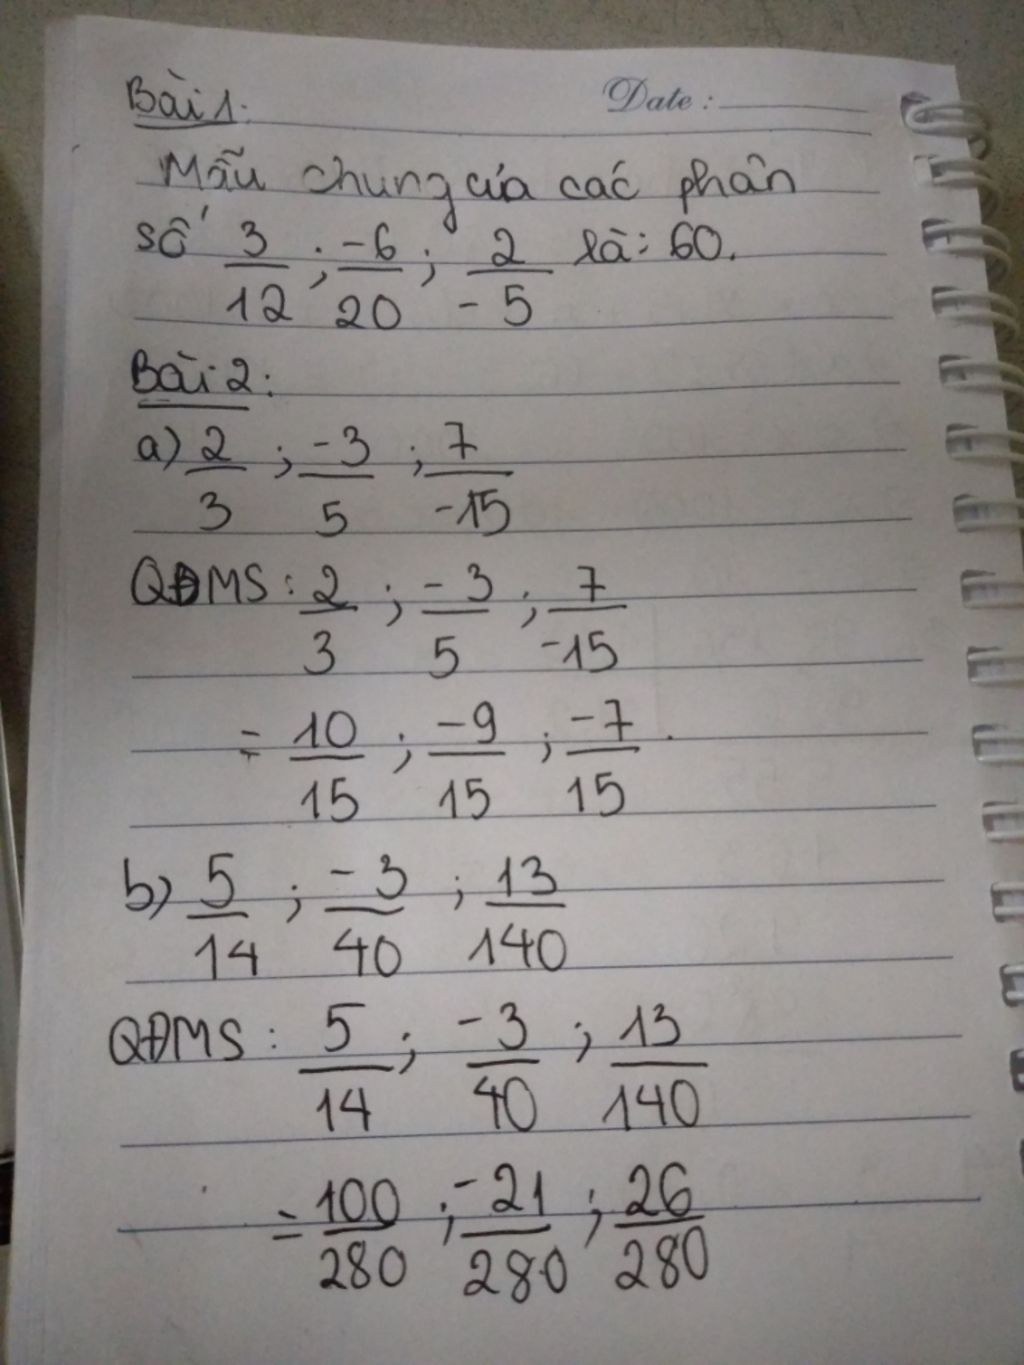 Bài 1:
Date:
Mẫu chung của các phân
số 3/12 ; -6/20 ; 2/-5 là: 60.
Bài 2:
a) 2/3 ; -3/5 ; 7/-15
QĐMS: 2/3 ; -3/5 ; 7/-15
= 10/15 ; -9/15 ; -7/15.
b) 5/14 ; -3/40 ; 13/140
QĐMS: 5/14 ; -3/40 ; 13/140
= 100/280 ; -21/280 ; 26/280